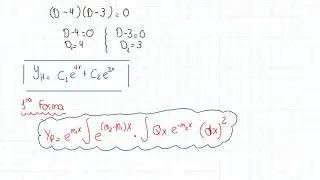 (D-4)(D-3)=0
D-4=0 D-3=0
D₁=4 D₂=3
Y_H = C₁e^{4x} + C₂e^{3x}
1ra Forma
Y_P = e^{m₁x} ∫ e^{(m₂-m₁)x} · ∫ Qx e^{-m₂x} (dx)²